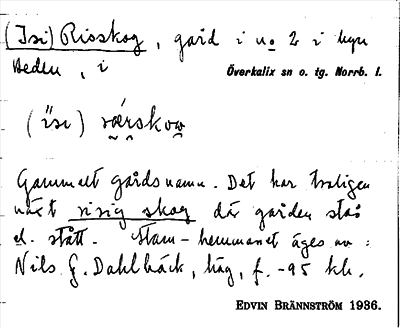 (Isi) Risskog, gård i no 2 i byn
Heden, i Överkalix sn o. tg. Norrb. l.
(isi)
Gammalt gårdsnamn. Det har troligen
växt risig skog där gården står
el. stått. Stam-hemmanet äges av:
Nils G. Dahlbäck, häg, f. -95 kh.
EDVIN BRÄNNSTRÖM 1936.